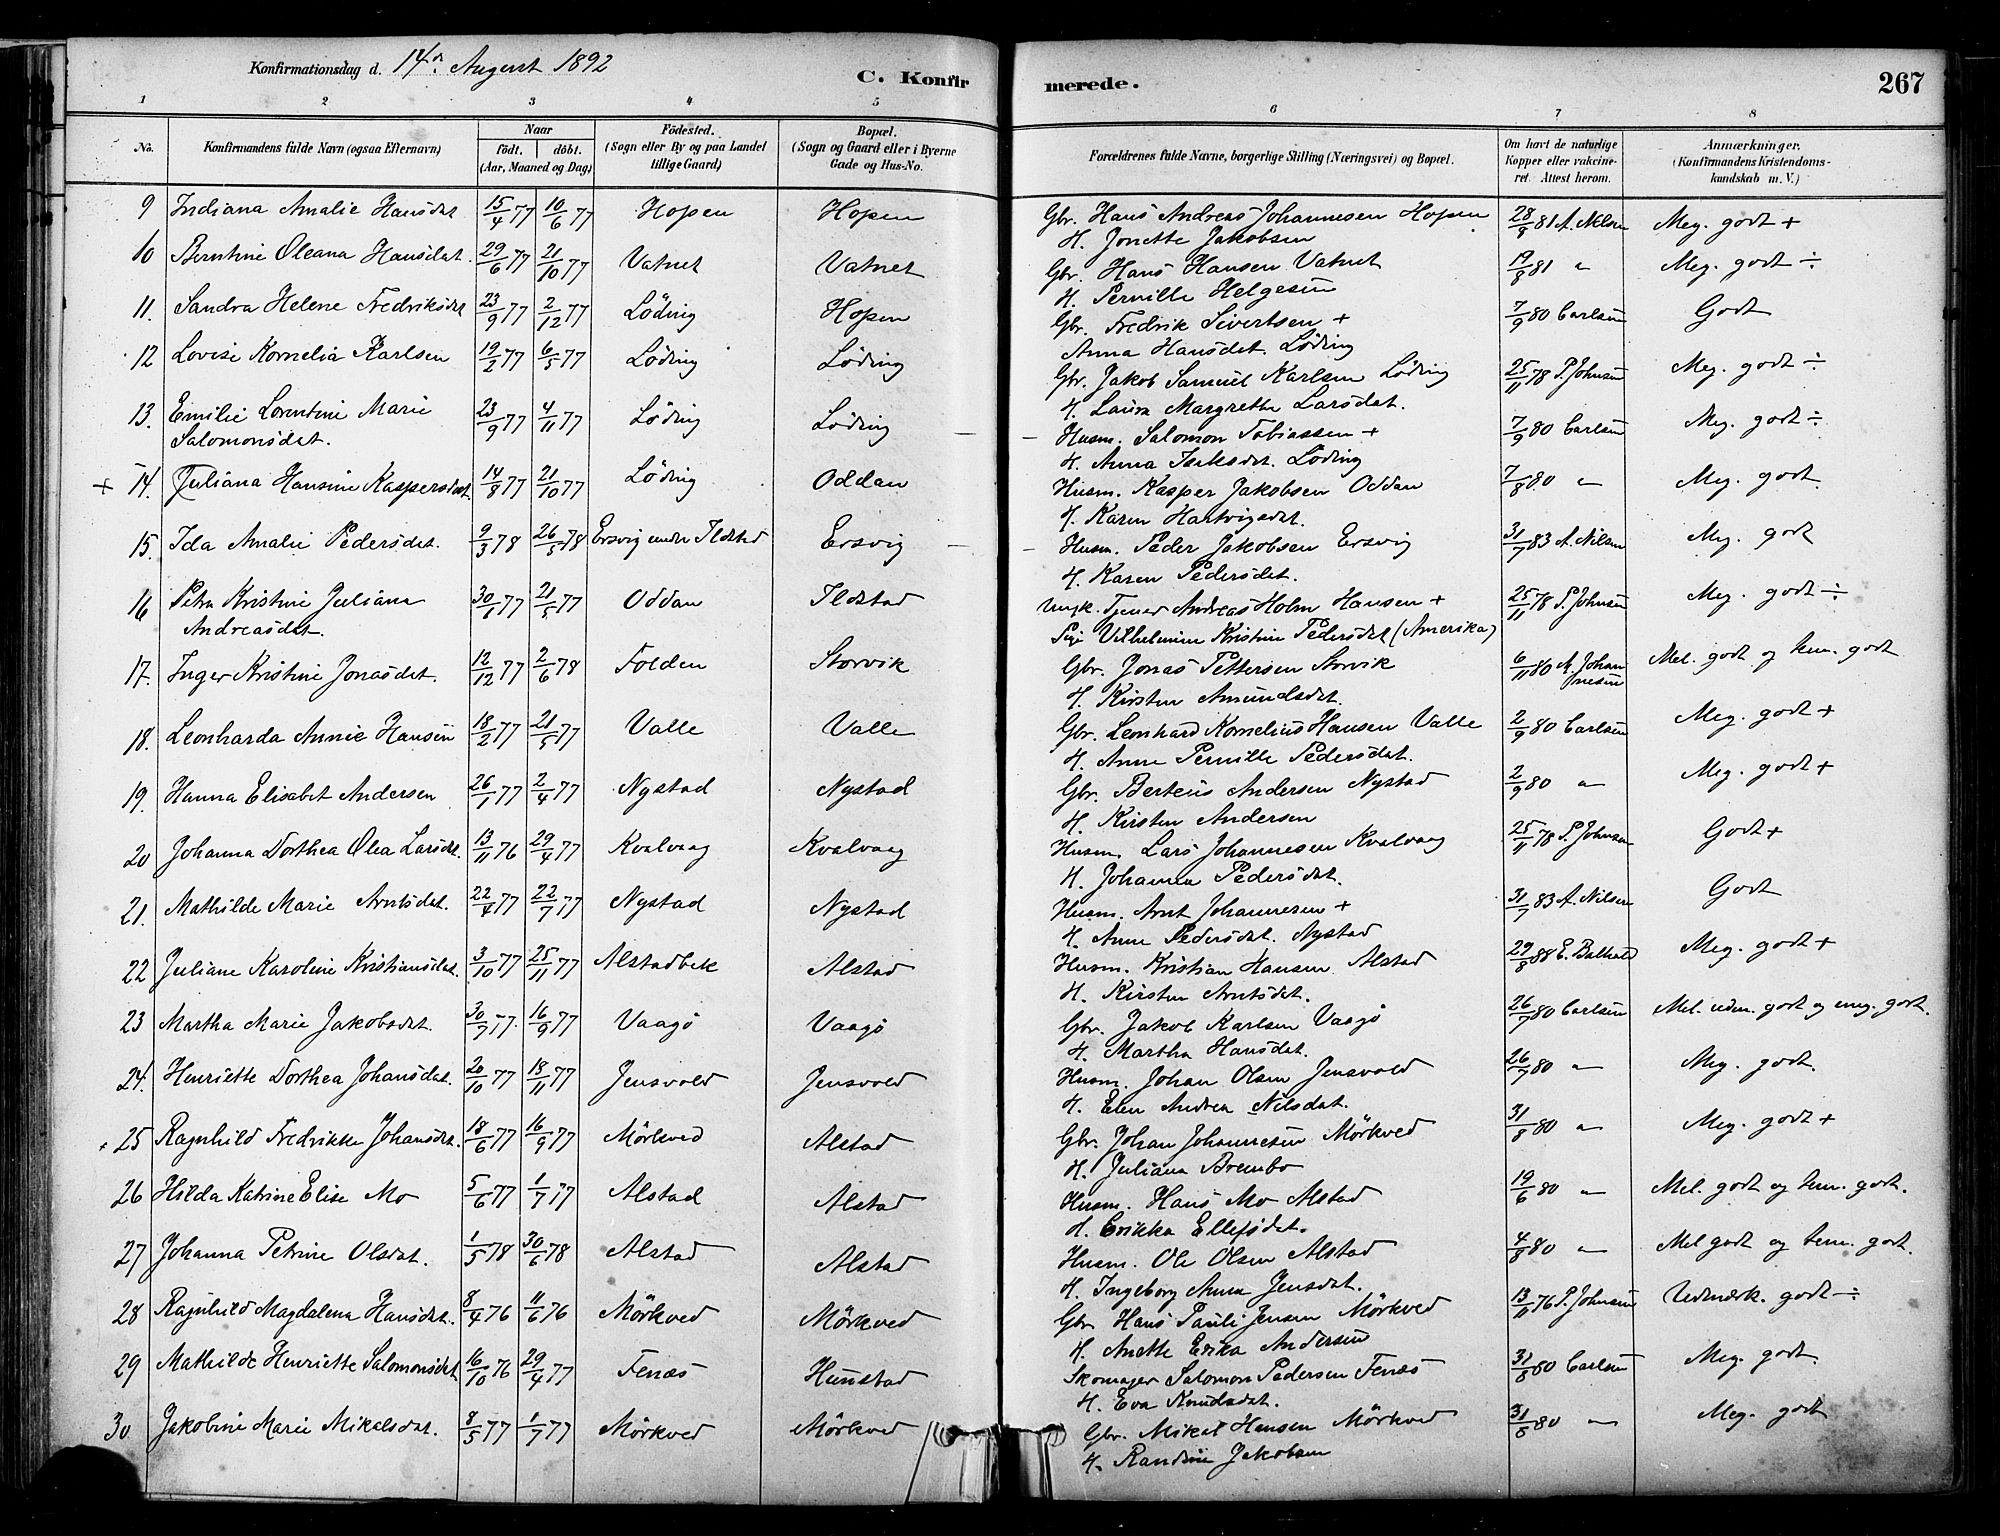 Konfirmationsdag d. 14de August 1892
C. Konfirmerede.
267
1 2 3 4 5 6 7 8
No.
Konfirmandens fulde Navn (ogsaa Efternavn)
Naar
födt. döbt.
(Aar, Maaned og Dag)
Födested.
(Sogn eller By og paa Landet
tillige Gaard.)
Bopæl.
(Sogn og Gaard eller i Byerne
Gade og Hus-No.
Forældrenes fulde Navne, borgerlige Stilling (Næringsvei) og Bopæl.
Om havt de naturlige
Kopper eller vakcine-
ret. Attest herom.
Anmærkninger.
(Konfirmandens Kristendoms-
kundskab m. V.)
9 Indiana Amalie Hansdat 15/4 77 10/6 77 Hopen Hopen Gbr. Hans Andreas Johannesen Hopen 28/8 81 A. Nilsen Meg. godt +
H. Jonette Jakobsen
10 Berntine Oleana Hansdat. 29/6 77 21/10 77 Vatnet Vatnet Gbr. Hans Hansen Vatnet 19/8 81 " Meg. godt ÷
H. Pernille Helgesen
11. Sandra Helene Fredriksdat 23/9 77 2/12 77 Löding Hopen Gbr. Fredrik Sivertsen + 7/9 80 Carlsen Godt
Anna Hansdat. Löding
12 Lovise Kornelia Karlsen 19/2 77 6/5 77 Löding Löding Gbr. Jakob Samuel Karlsen Löding 25/11 78 P. Johnsen Meg. godt ÷
H. Laura Margrethe Larsdat.
13. Emilie Lorentine Marie 23/9 77 4/11 77 Löding Löding — Husm. Salomon Tobiassen + 7/9 80 Carlsen Meg. godt ÷
Salomonsdat.
H. Anna Isaksdat. Löding
+ 14. Juliana Hansine Kaspersdat. 14/8 77 21/10 77 Löding Oddan Husm. Kasper Jakobsen Oddan 7/8 80 " Meg. godt.
H. Karen Hartvigsdat.
15. Ida Amalie Pedersdat. 9/3 78 26/5 78 Ersvig under Ildstad Ersvig — Husm. Peder Jakobsen Ersvig 31/7 83 A. Nilsen Meg. godt
H. Karen Pedersdat.
16 Petra Kristine Juliana 30/1 77 21/5 77 Oddan Ildstad Ungk. Tjener Andreas Holm Hansen + 25/11 78 P. Johnsen Meg. godt ÷
Andreasdat.
Pige Vilhelmine Kristine Pedersdat (Amerika)
17. Inger Kristine Jonasdat. 12/12 77 2/6 78 Folden Storvik Gbr. Jonas Pettersen Storvik 6/11 80 M. Johannesen Mel. godt og tem. godt
H. Kirsten Amundsdat.
18. Leonharda Annie Hansen 18/2 77 21/5 77 Valle Valle Gbr. Leonhard Kornelius Hansen Valle 2/9 80 Carlsen Meg. godt +
H. Anne Pernille Pedersdat.
19. Hanna Elisabet Andersen 26/1 77 2/4 77 Nystad Nystad Gbr. Berteus Andersen Nystad 2/9 80 " Meg. godt +
H. Kirsten Andersen
20 Johanna Dorthea Olea Larsdat. 13/11 76 29/4 77 Kvalvaag Kvalvaag Husm. Lars Johannesen Kvalvaag 25/11 78 P. Johnsen Godt +
H. Johanna Pedersdat.
21. Mathilde Marie Arntsdat. 22/4 77 22/7 77 Nystad Nystad Husm. Arnt Johannesen + 31/7 83 A. Nilsen Godt
H. Anne Pedersdat. Nystad
22 Juliane Karoline Kristiansdat. 3/10 77 25/11 77 Alstadbek Alstad Husm. Kristian Hansen Alstad 29/8 88 E. Meg. godt +
H. Kirsten Arntsdat.
23 Martha Marie Jakobsdat. 30/7 77. 16/9 77 Vaagö Vaagö Gbr. Jakob Karlsen Vaagö 26/7 80 Carlsen Mel. udm. godt og meg. godt.
H. Martha Hansdat.
24. Henriette Dorthea Johansdat. 20/10 77 18/11 77 Jensvold Jensvold Husm. Johan Olsen Jensvold 26/7 80 " Meg. godt.
H. Elen Andrea Nilsdat.
25 Ragnhild Fredrikke Johansdat. 18/6 77 16/9 77 Mörkved Alstad Gbr. Johan Johannesen Mörkved 31/8 80 " Meg. godt +
H. Juliana Brembo
26 Hilda Katrine Elise Mo 5/6 77 1/7 77 Alstad Alstad Husm. Hans Mo Alstad 19/6 80 " Mel. godt og tem. godt.
H. Erikka Ellefsdat.
27 Johanna Petrine Olsdat. 1/5 78 30/6 78 Alstad Alstad Husm. Ole Olsen Alstad 4/8 80 " Mel godt og tem. godt.
H. Ingeborg Anna Jensdat.
28 Ragnhild Magdalena Hansdat. 8/4 76 11/6 76 Mörkved Mörkved Gbr. Hans Pauli Jensen Mörkved 13/11 76 P. Johnsen Udmærk. godt ÷
H. Anette Erika Andersen
29 Mathilde Henriette Salomonsdat 16/10 76 29/4 77 Fenæs Hunstad Skomager Salomon Pedersen Fenæs 31/8 80 Carlsen Meg. godt.
H. Eva Knudsdat.
30 Jakobine Marie Mikalsdat. 8/5 77 1/7 77 Mörkved Mörkved Gbr. Mikal Hansen Mörkved 31/8 80 " Meg. godt
H. Randine Jakobsen